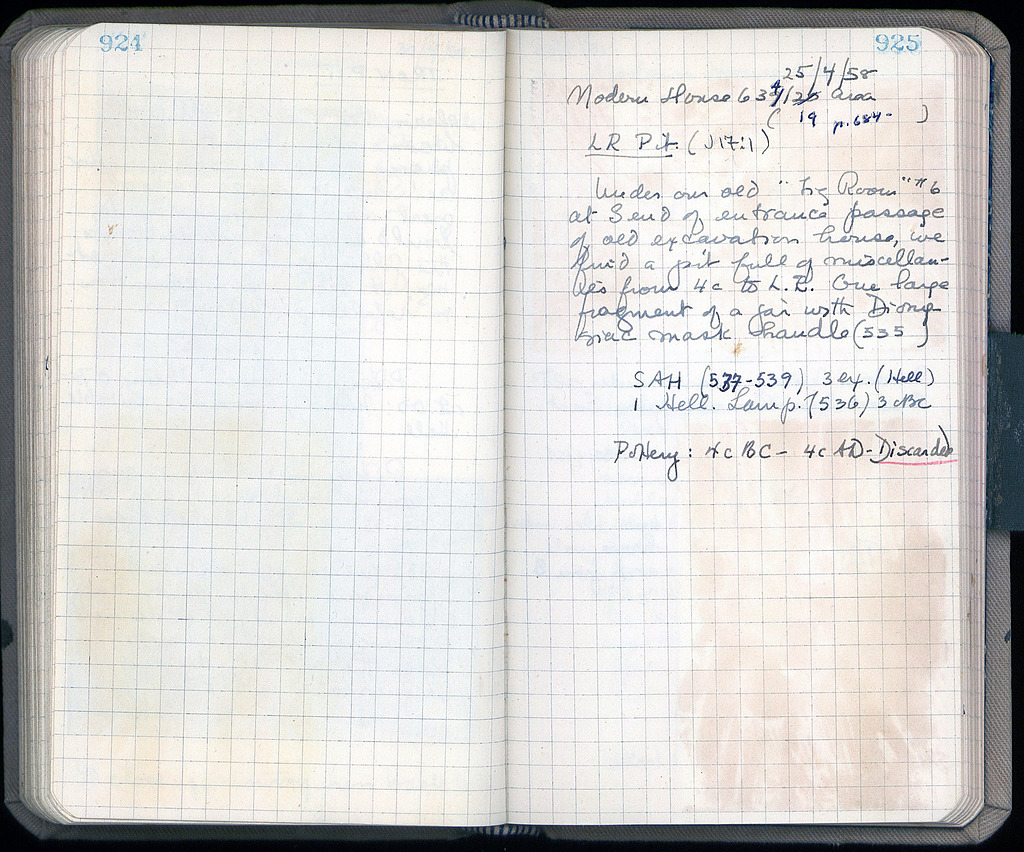 924
925
25/4/58
Modern House 634/ Area
( 19 p. 684- )
LR Pit (J 17:1)
Under our old " Room" 6
at S end of entrance passage
of old excavation house, we
find a pit full of miscellan-
ies from 4c to L.R. One large
fragment of a jar with Diony-
siac mask handle (535)
SAH (537-539) 3 ex. (Hell)
1 Hell. Lamp. (536) 3 cBC
Pottery: 4c BC - 4c AD - Discarded